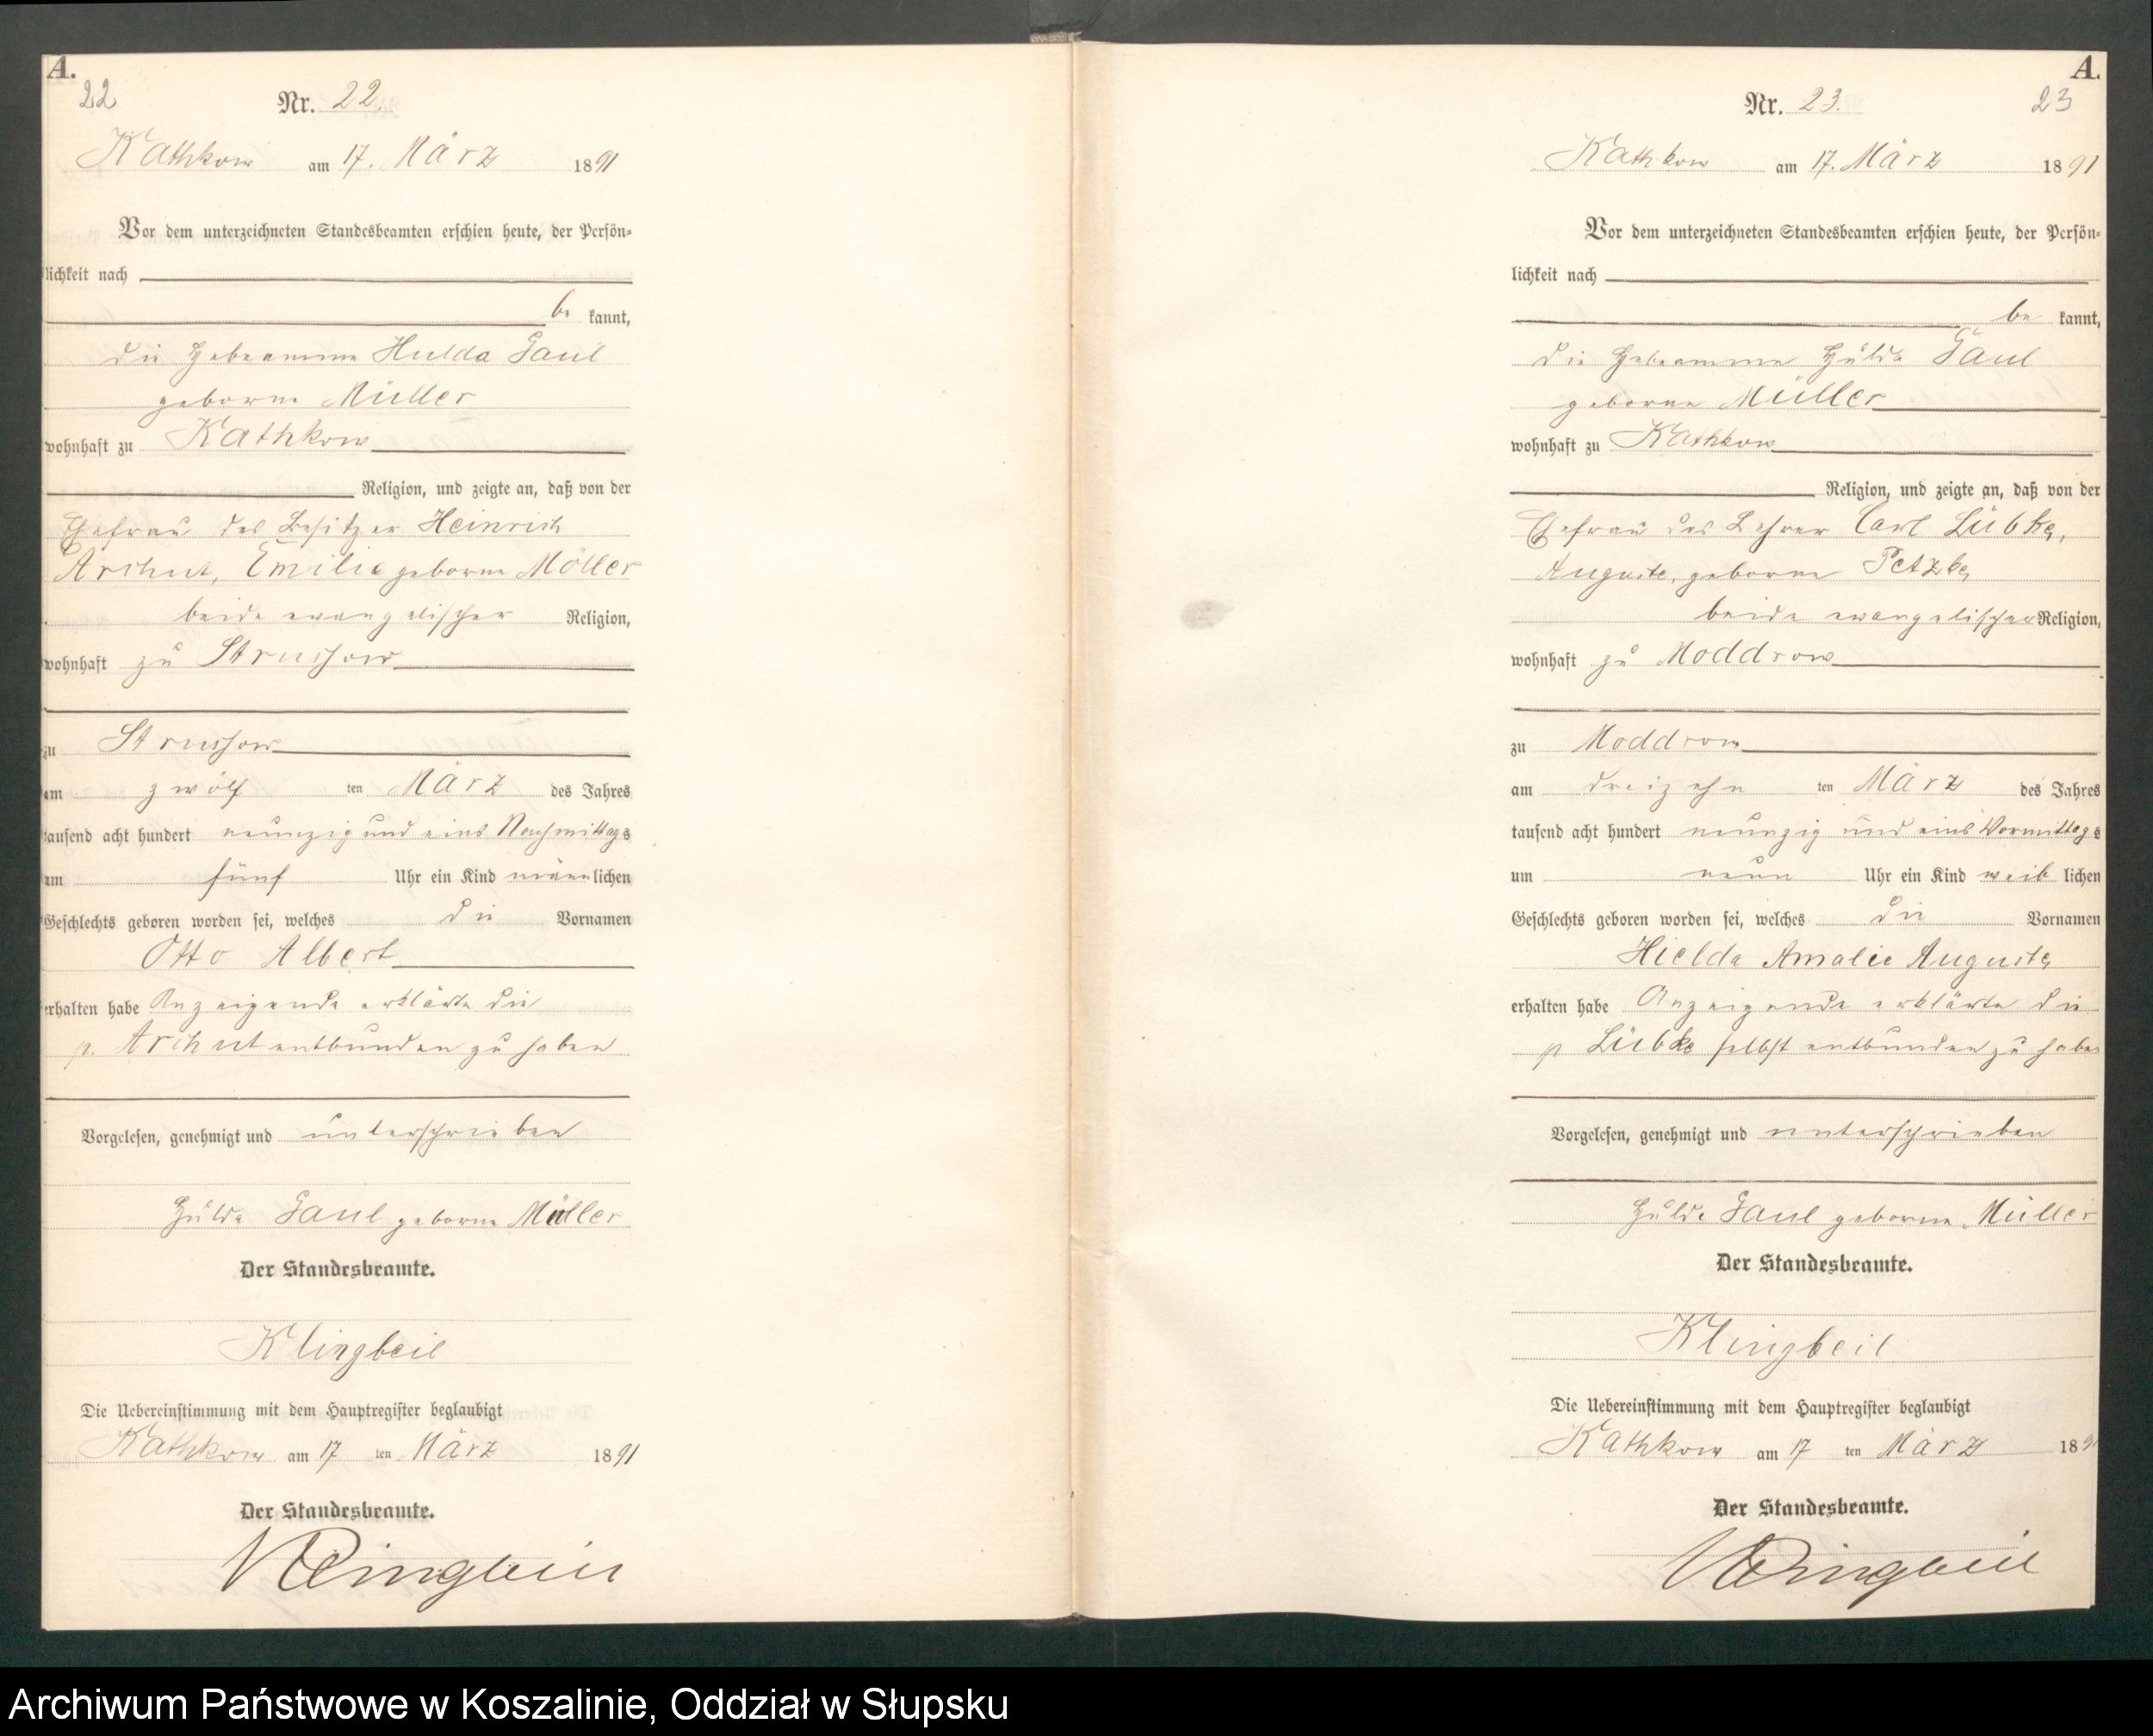 A.
22
Nr. 22.
Kathkow am 17. März 1891
Vor dem unterzeichneten Standesbeamten erschien heute, der Persön-
lichkeit nach
be kannt,
die Hebeamme Hulda Gaul
geborne Müller
wohnhaft zu Kathkow
Religion, und zeigte an, daß von der
Ehefrau des Besitzer Heinrich
Archut, Emilie geborne Möller
beide evangelischer Religion,
wohnhaft zu Strussow
zu Strussow
am zwölf ten März des Jahres
tausend acht hundert neunzig und eins Nachmittags
um fünf Uhr ein Kind männlichen
Geschlechts geboren worden sei, welches die Vornamen
Otto Albert
erhalten habe Anzeigende erklärte die
p. Archut entbunden zu haben
Vorgelesen, genehmigt und unterschrieben
Hulda Gaul geborne Müller
Der Standesbeamte.
Klingbeil
Die Uebereinstimmung mit dem Hauptregister beglaubigt
Kathkow am 17 ten März 1891
Der Standesbeamte.
Klingbeil
A.
23
Nr. 23.
Kathkow am 17. März 1891
Vor dem unterzeichneten Standesbeamten erschien heute, der Persön-
lichkeit nach
be kannt,
die Hebeamme Hulda Gaul
geborne Müller
wohnhaft zu Kathkow
Religion, und zeigte an, daß von der
Ehefrau des Lehrer Carl Lübke,
Auguste, geborne Petzke
beide evangelischer Religion,
wohnhaft zu Moddrow
zu Moddrow
am dreizehn ten März des Jahres
tausend acht hundert neunzig und eins Vormittags
um neun Uhr ein Kind weib lichen
Geschlechts geboren worden sei, welches die Vornamen
Hielda Amalie Auguste
erhalten habe Anzeigende erklärte die
p Lübke selbst entbunden zu haben
Vorgelesen, genehmigt und unterschrieben
Hulda Gaul geborne Müller
Der Standesbeamte.
Klingbeil
Die Uebereinstimmung mit dem Hauptregister beglaubigt
Kathkow am 17 ten März 1891
Der Standesbeamte.
Klingbeil
Archiwum Państwowe w Koszalinie, Oddział w Słupsku